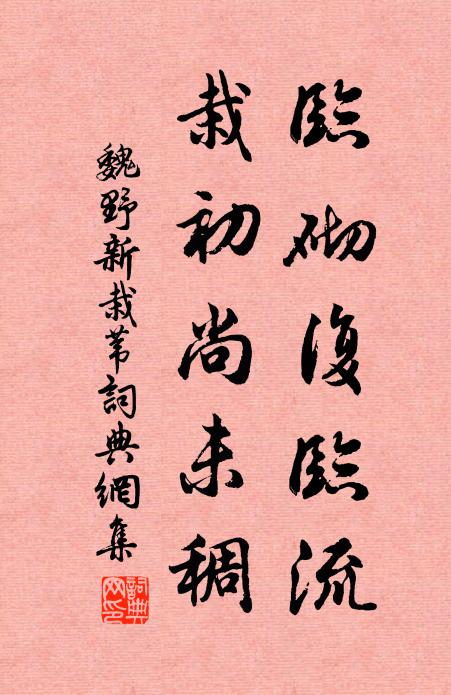 臨砌復臨流
栽初尚未稠
魏野新栽葦詞典網集
詞典网印